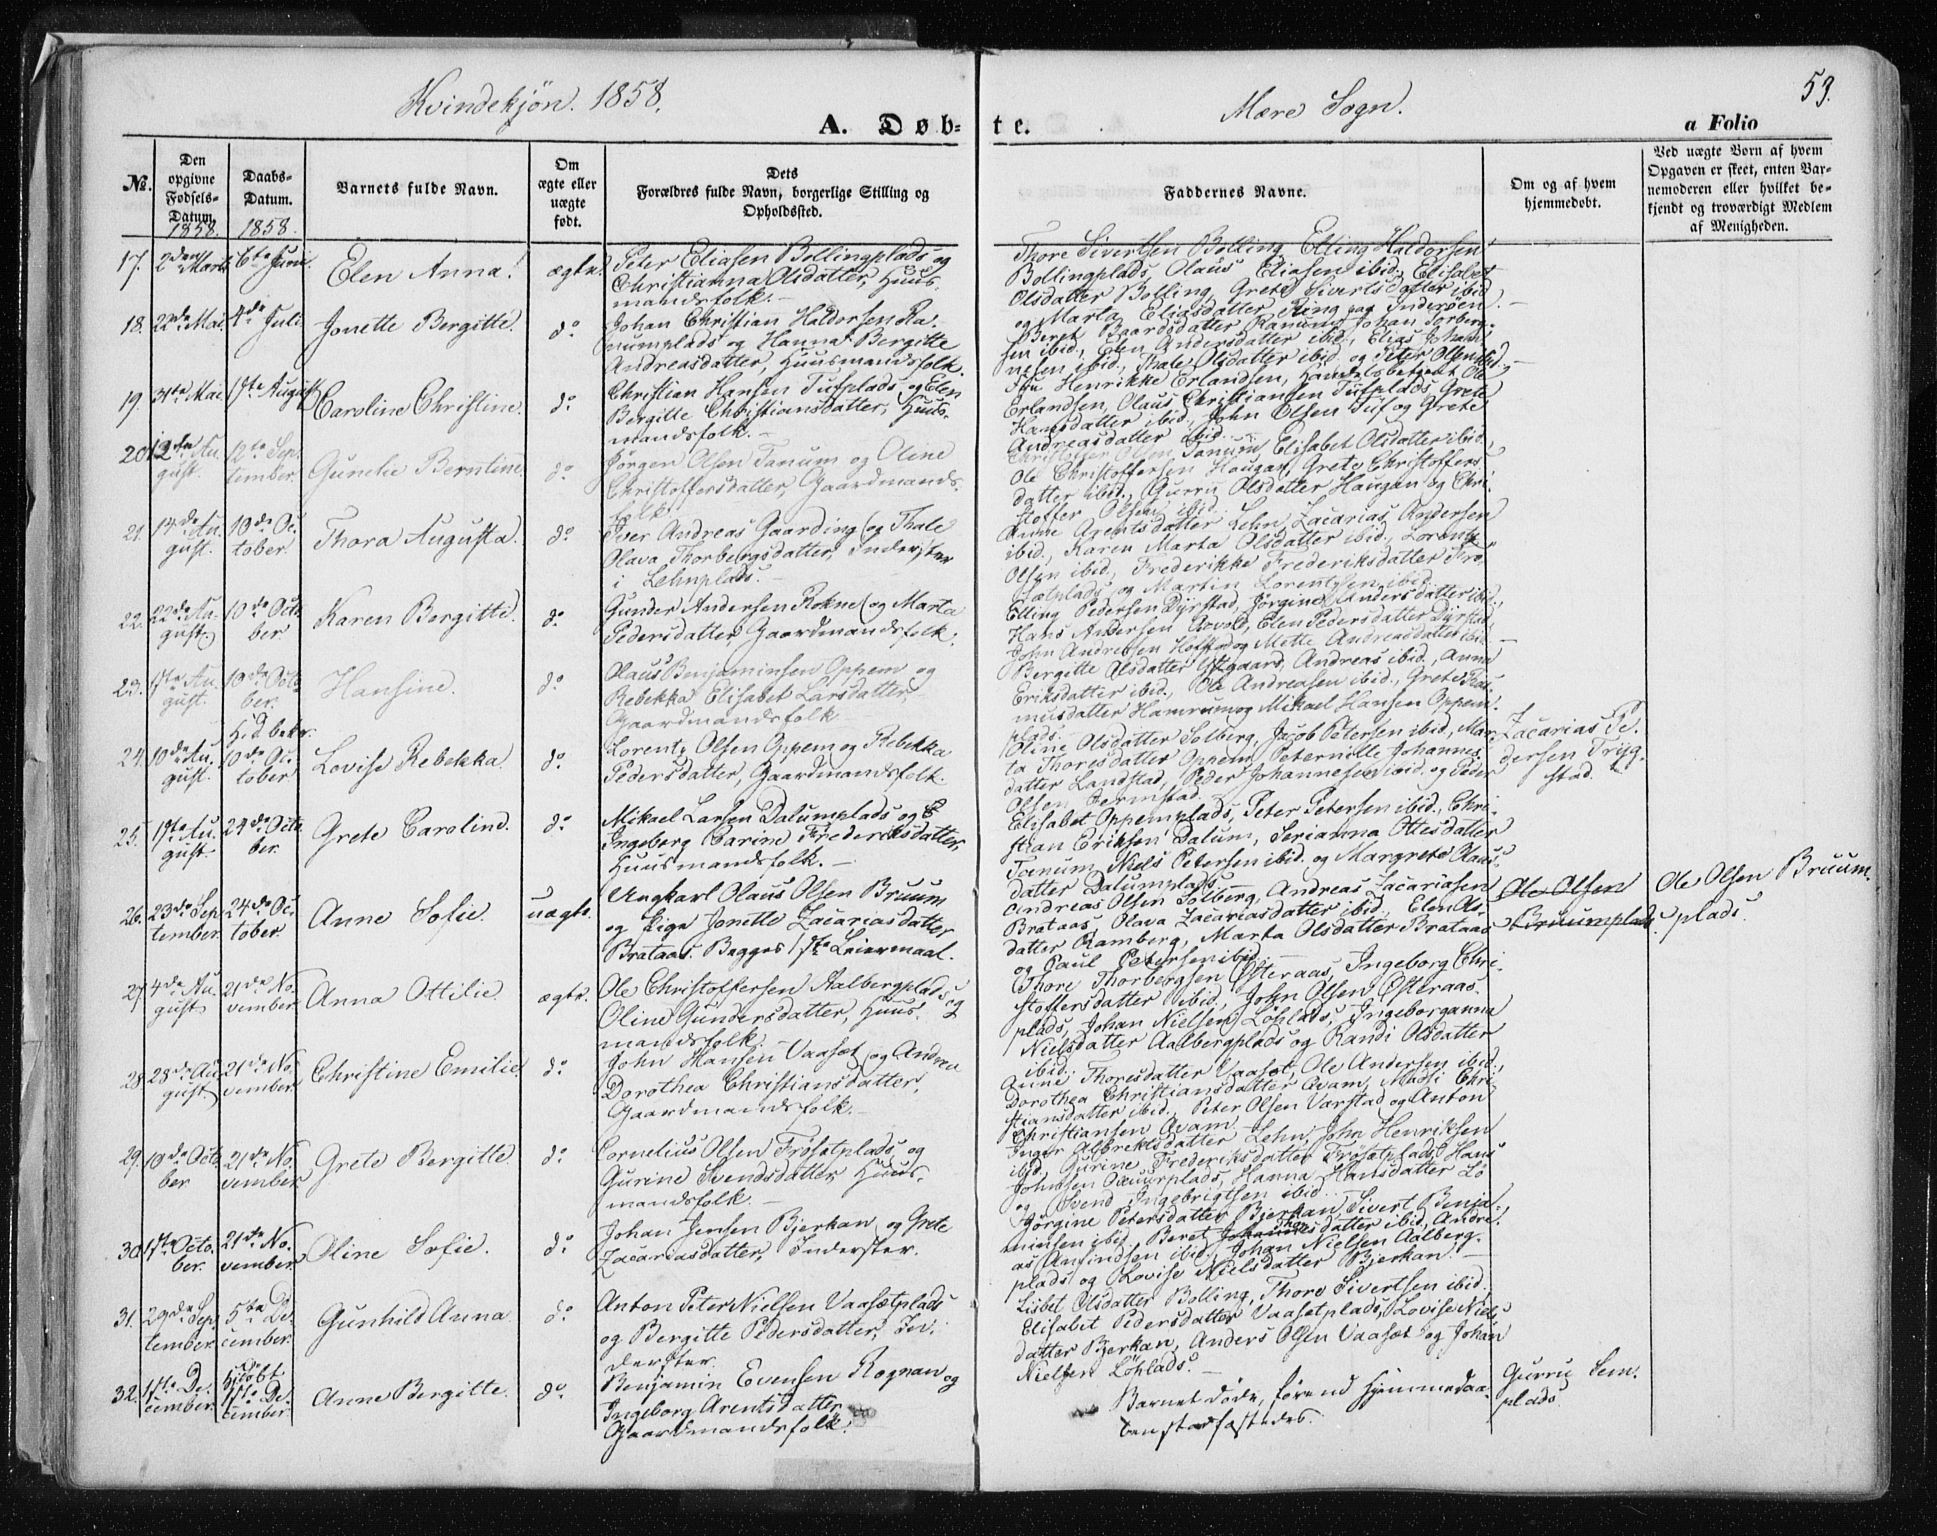 Kvindekjøn. 1858.
A. Døb-
te.
Mære Sogn.
53.
a Folio
No.
Den opgivne Fødsels-Datum. 1858.
Daabs-Datum. 1858.
Barnets fulde Navn.
Om ægte eller uægte født.
Dets Forældres fulde Navn, borgerlige Stilling og Opholdssted.
Faddernes Navne.
Om og af hvem hjemmedøbt.
Ved uægte Børn af hvem Opgaven er skeet, enten Barnemoderen eller hvilket bekjendt og troværdigt Medlem af Menigheden.
17. 2den Marts 6te Juni. Elen Anna. ægte.
Peter Eliasen Bollingplads og
Christianna Olsdatter, Huus-
mandsfolk.
Thore Sivertsen Bolling, Elling Haldorsen
Bollingplads, Olaus Eliasen ibid., Elisabet
Olsdatter Bolling, Grete Sivertsdatter ibid
og Marta Eliasdatter Ring paa Inderøen.
18. 22de Mai. 4de Juli Jonette Bergitte. do
Johan Christian Haldorsen Ra-
numplads og Hanna Bergitte
Andreasdatter, Huusmandsfolk.
Beret Baardsdatter Ranum, Johan Torberg-
sen ibid., Elen Andersdatter ibid., Elias Johan-
nesen ibid., Thale Olsdatter ibid. og Peter Olsen ibid.
19. 31te Mai. 1ste August Caroline Christine. do
Christian Hansen Tufplads og Elen
Bergitte Christiansdatter, Huus-
mandsfolk.
Fru Henrikke Erlandsen, Handelsbetjent Ole
Erlandsen, Olaus Christiansen Tufplads, Grete
Hansdatter ibid., John Olsen Tuf og Grete
Andreasdatter ibid.
20. 12te Au-
gust. 12te Sep-
tember. Gunelie Berntine. do
Jørgen Olsen Tanum og Oline
Christoffersdatter, Gaardmands-
folk.
Christoffer Olsen Tanum, Elisabet Olsdatter ibid.,
Ole Christoffersen Haugan, Grete Christoffers-
datter ibid., Gurru Olsdatter Haugan og Chri-
stoffer Olsen ibid.
21. 14de Au-
gust. 10de Oc-
tober. Thora Augusta. do
Iver Andreas Gaarding og Thale
Olava Thorbergsdatter, Inderster
i Lehnplads.
Anne Arentsdatter Lehn, Zacarias Andersen
ibid., Karen Marta Olsdatter ibid., Lorents
Olsen ibid., Frederikke Frederiksdatter Frø-
sætplads og Martin Lorentsen ibid.
22. 22de Au-
gust. 10de Octo-
ber Karen Bergitte. do
Gunder Andersen Rokne og Marta
Pedersdatter, Gaardmandsfolk.
Elling Pedersen Dyrstad, Jørgine Andersdatter ibid.,
Hans Andersen Avold, Elen Pedersdatter Dyrstad,
John Andresen Hoffer og Mette Andreasdatter ibid.
23. 1ste Au-
gust. 10de Octo-
ber. Hansine. do
Olaus Benjaminsen Oppem og
Rebekka Elisabet Larsdatter,
Gaardmandsfolk
Bergitte Olsdatter Ystgaard, Andreas ibid., Anna
Eriksdatter ibid., Ole Andreasen ibid., Grete Ras-
musdatter Hamrum og Mikael Hansen Oppem-
plads.
24. 10de Au-
gust. H.d. bekr.
10de Oc-
tober Lovise Rebekka. do
Lorents Olsen Oppem og Rebekka
Pedersdatter, Gaardmandsfolk.
Oline Olsdatter Solberg, Jacob Petersen ibid., Mar-
ta Thoresdatter Oppem, Peternille Johannes-
datter Landstad, Peder Johannesen ibid. og Peder
Olsen Jermstad.
Zacarias Pe-
dersen Tryg-
stad.
25. 19te Au-
gust. 24de Octo-
ber. Grete Caroline. do
Mikael Larsen Dalumplads og
Ingeborg Carine Frederiksdatter,
Huusmandsfolk.
Elisabet Oppemplads, Peter Petersen ibid., Chri-
stian Eriksen Dalum, Serianna Ottesdatter
Tanum, Niels Petersen ibid. og Margrete Olaus-
datter Dalumplads.
26. 23de Sep-
tember 24de Oc-
tober. Anne Sofie. uægte.
Ungkarl Olaus Olsen Bruum
og Pige Jonette Zacariasdatter
Brataas. Begges 1ste Leiermaal.
Andreas Olsen Solberg, Andreas Zacariasen
Brataas, Olava Zacariasdatter ibid., Elen Ols-
datter Ramberg, Marta Olsdatter Brataas
og Paul Petersen ibid.
Ole Olsen
Bruumplads.
Ole Olsen Bruum-
plads.
27. 4de Au-
gust 21de No-
vember. Anna Ottilie. ægte.
Ole Christoffersen Aalbergplads og
Oline Gundersdatter, Huus-
mandsfolk.
Thore Thorbergsen Østeraas, Ingeborg Chri-
stoffersdatter ibid., John Olsen Østeraas-
plads, Johan Nielsen Løhlads, Ingeborganna
Nielsdatter Aalbergplads og Randi Olsdatter
ibid.
28. 28de Au-
gust. 21de No-
vember. Christine Emilie. do
John Hansen Vaasæt og Andrea
Dorothea Christiansdatter,
Gaardmandsfolk.
Anne Thoresdatter Vaasæt, Ole Andersen ibid.,
Dorothea Christiansdatter Avam, Madsi Chri-
stiansdatter ibid., Peter Olsen Varstad og Anton
Christiansen Avam.
29. 10de Octo-
ber 21de No-
vember Grete Bergitte. do
Cornelius Olsen Frøsætplads og
Gurine Svendsdatter, Huus-
mandsfolk.
Inger Albrektsdatter Lehn, John Henriksen
ibid., Gurine Frederiksdatter Frøsætplads, Hans
Johnsen plads, Hanna Hansdatter Lø
og Svend Ingebrigtsen ibid.
30. 1ste Octo-
ber. 21de No-
vember. Oline Sofie. do
Johan Jensen Bjerkan og Grete
Zacariasdatter, Inderster.
Jørgine Petersdatter Bjerkan, Sivert Benja-
minsen ibid., Beret Johannesdatter ibid., Andre-
as Anfindsen ibid., Johan Nielsen Aalberg-
plads og Lovise Nielsdatter Bjerkan.
31. 29de Sep-
tember. 5te De-
cember. Gunhild Anna do
Anton Peter Nielsen Vaasætplads
og Bergitte Pedersdatter, In-
derster.
Lisbet Olsdatter Bolling, Thore Sivertsen ibid.,
Elisabet Pedersdatter Vaasætplads, Lovise Niels-
datter Bjerkan, Anders Olsen Vaasæt og Johan
Nielsen Løhlads.
32. 1ste De-
cember. Hjdøbt
1ste De-
cember. Anne Bergitte. do
Benjamin Evensen Rognan og
Ingeborg Arentsdatter
Gaardmandsfolk.
Barnet døde, førend Hjemmedaa-
ben stadfæstedes.
Gurru Sem-
plads.